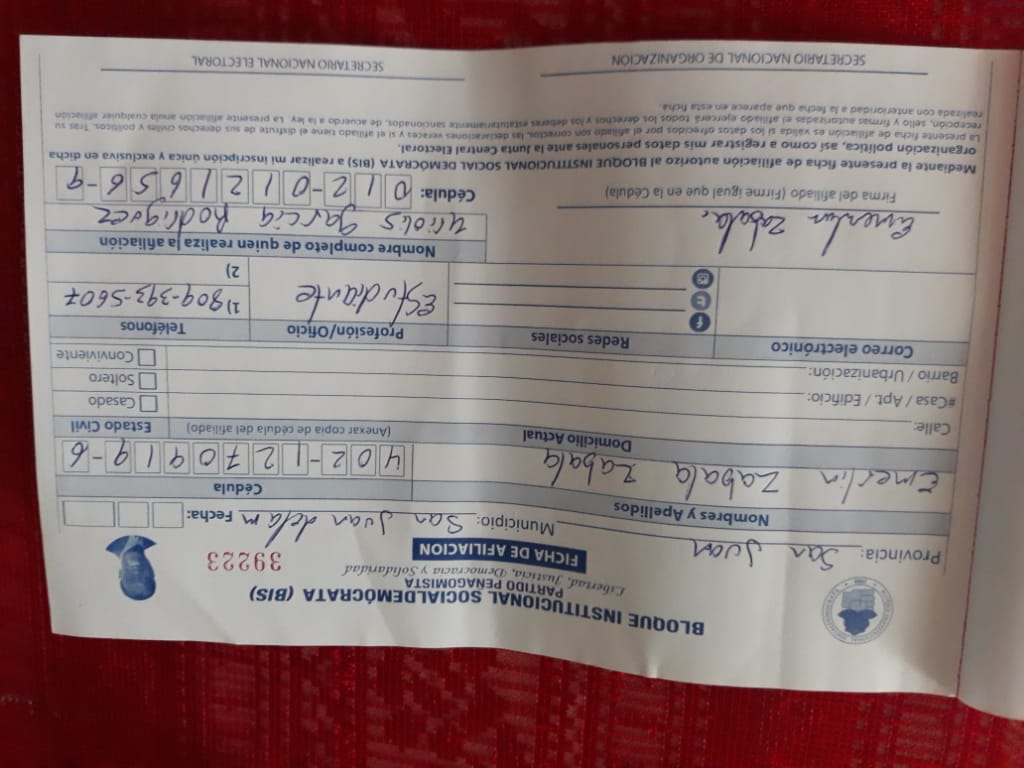 BLOQUE INSTITUCIONAL SOCIALDEMÓCRATA (BIS)
PARTIDO PEÑAGOMISTA
Libertad, Justicia, Democracia y Solidaridad
39223
FICHA DE AFILIACION
Provincia: San Juan Municipio: San Juan delam Fecha:
Nombres y Apellidos Cédula
Emerlin Zabala Zabala 402-1270919-6
Domicilio Actual (Anexar copia de cédula del afiliado) Estado Civil
Calle: Casado
#Casa / Apt. / Edificio: Soltero
Barrio / Urbanización: Conviviente
Correo electrónico Redes sociales Profesión/Oficio Teléfonos
Estudiante 1) 809-393-5607
2)
Nombre completo de quien realiza la afiliación
Emerlin Zabala. Garcia Rodriguez
Firma del afiliado (Firme igual que en la Cédula) Cédula: 012-0121656-9
Mediante la presente ficha de afiliación autorizo al BLOQUE INSTITUCIONAL SOCIAL DEMÓCRATA (BIS) a realizar mi inscripción única y exclusiva en dicha
organización política, así como a registrar mis datos personales ante la Junta Central Electoral.
La presente ficha de afiliación es válida si los datos ofrecidos por el afiliado son correctos, las declaraciones veraces y si el afiliado tiene el disfrute de sus derechos civiles y políticos. Tras su
recepción, sello y firmas autorizadas el afiliado ejercerá todos los derechos y los deberes estatutariamente sancionados, de acuerdo a la ley. La presente afiliación anula cualquier afiliación
realizada con anterioridad a la fecha que aparece en esta ficha.
SECRETARIO NACIONAL DE ORGANIZACION SECRETARIO NACIONAL ELECTORAL